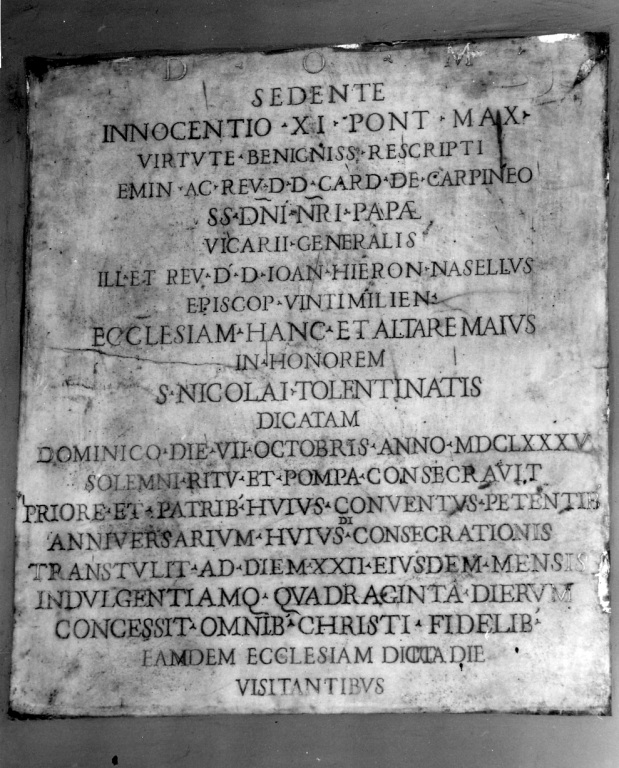 D · O · M ·
SEDENTE
INNOCENTIO · XI · PONT · MAX ·
VIRTVTE · BENIGNISS · RESCRIPTI
EMIN · AC · REV · D · D · CARD · DE · CARPINEO
SS · DÑI · NR̃I · PAPÆ
VICARII · GENERALIS
ILL · ET REV · D · D · IOAN · HIERON · NASELLVS
EPISCOP · VINTIMILIEN ·
ECCLESIAM · HANC · ET ALTARE MAIVS
IN · HONOREM
S · NICOLAI · TOLENTINATIS
DICATAM
DOMINICO · DIE · VII · OCTOBRIS · ANNO · MDCLXXXV
SOLEMNI · RITV · ET · POMPA · CONSECRAVIT
PRIORE · ET · PATRIB · HVIVS · CONVENTVS · PETENTIB
DI
ANNIVERSARIVM · HVIVS · CONSECRATIONIS
TRANSTVLIT · AD · DIEM · XXII · EIVSDEM · MENSIS
INDVLGENTIAMQ · QVADRAGINTA · DIERVM
CONCESSIT · OMNIB · CHRISTI · FIDELIB ·
EAMDEM ECCLESIAM DICTA DIE
VISITANTIBVS